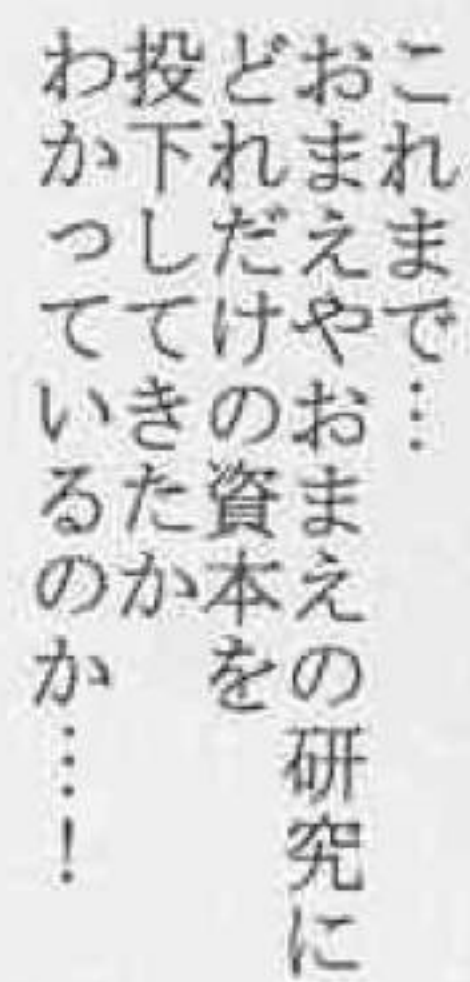 これまで…
おまえやおまえの研究に
どれだけの資本を
投下してきたか
わかっているのか…！